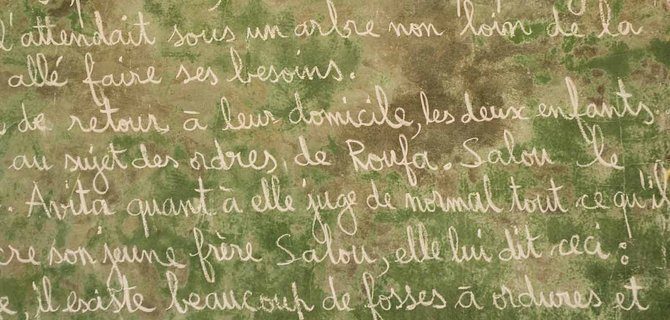 l'attendait sous un arbre non loin de la
allé faire ses besoins.
de retour à leur domicile, les deux enfants
au sujet des ordres, de Roufa. Salou le
. Avita quant à elle juge de normal tout ce qu'il
cre son jeune frère Salou, elle lui dit ceci :
e, il existe beaucoup de fosses à ordures et